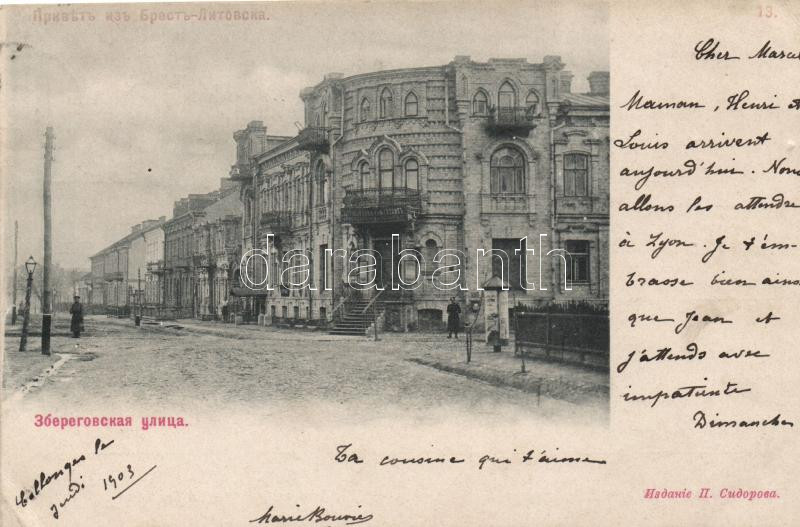 Привѣтъ изъ Брестъ-Литовска.
13.
Cher Marcel
Maman, Henri et
Louis arrivent
aujourd'hui. Nous
allons les attendre
à Lyon. Je t'em-
brasse bien ainsi
que Jean et
j'attends avec
impatiente
Dimanche
darabanth
Збереговская улица.
Collonges le
Jeudi 1903
Ta cousine qui t'aime
Marie Bouvier
Изданіе П. Сидорова.